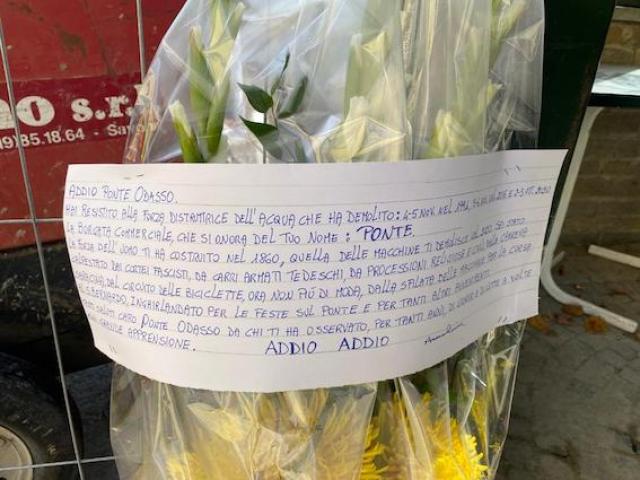 no s.r.l
19)85.18.64 - Sav
ADDIO PONTE ODASSO.
HAI RESISTITO ALLA FORZA DISTRUTTRICE DELL'ACQUA CHE HA DEMOLITO: 4-5 NOV. NEL 1994,
LA BORGATA COMMERCIALE, CHE SI ONORA DEL TUO NOME: PONTE.
LA FORZA DELL'UOMO TI HA COSTRUITO NEL 1860, QUELLA DELLE MACCHINE TI DEMOLISCE NEL SEI STATO
CALPESTATO DAI CORTEI FASCISTI, DA CARRI ARMATI TEDESCHI, DA PROCESSIONI RELIGIOSE E CIVILI, DALLA
DAL CIRCUITO DELLE BICICLETTE, ORA NON PIÙ DI MODA, DALLA SFILATA DELLE PER LA CORSA
BERNARDO, INGHIRLANDATO PER LE FESTE SUL PONTE E PER TANTI ALTRI AVVENIMENTI.
SALUTI CARO PONTE ODASSO DA CHI TI HA OSSERVATO, PER TANTI ANNI, DI A VOLTE
GRANDE APPRENSIONE. ADDIO ADDIO